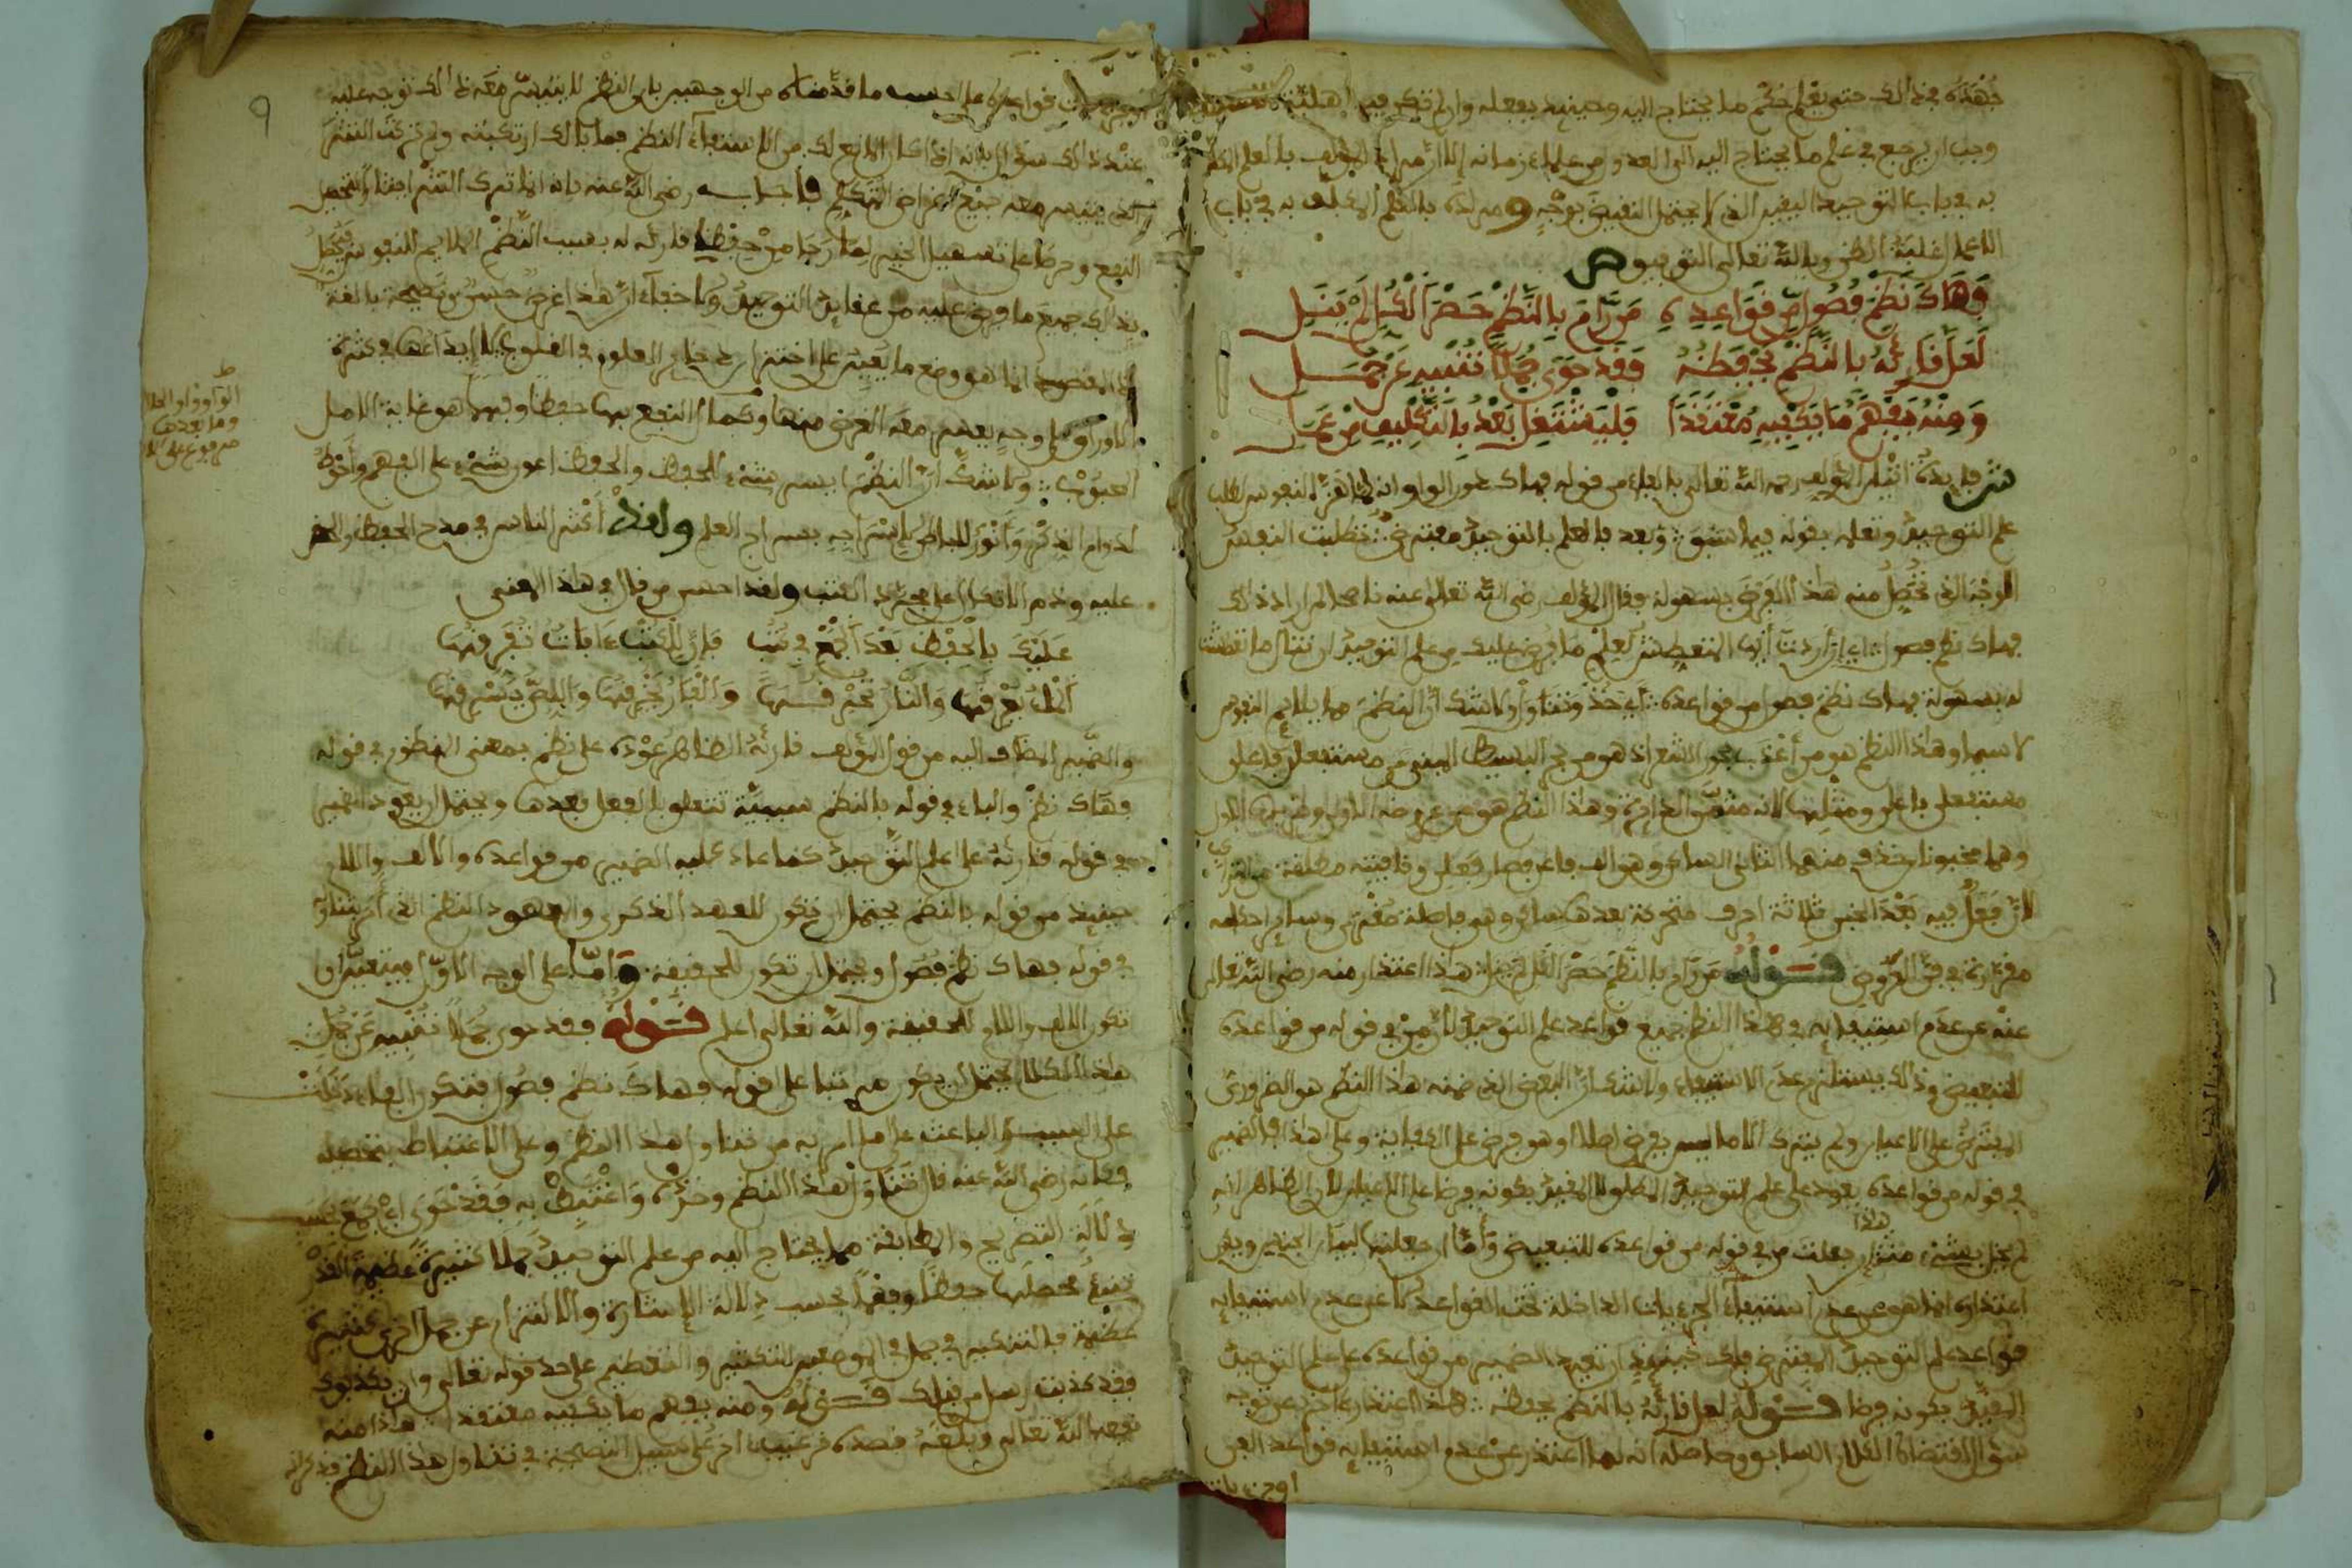 جهده في ذلك حتى يعلم حكم ما يحتاج اليه وحينئذ يفعله وان لم تكن فيه اهلية
وجب ان يرجع في علم ما يحتاج اليه الى العدول من علماء زمانه الا ان مراد المؤلف بالعلم المكلف
به في باب التوحيد اليقين الذي لا يحتمل النقيض بوجه ومراده بالعلم المكلف به في باب
الاعمال غلبة الظن وبالله تعالى التوفيق ص
وهاك نظم فصول من قواعده من رام بالنظم حصر الكل لم ينل
لعل قارئه بالنظم يحفظه وقد حوى جملا تنبيه عن جمل
ومنه يفهم ما يكفيه معتقدا فليشتغل بعد بالتكليف من عمل
ش فايدة اتيان المؤلف رحمه الله تعالى بالفاء من قوله فهاك عوض الواو انه لما هز النفوس لطلب
علم التوحيد وتعلمه بقوله فيما سبق وبعد فالعلم بالتوحيد مفترض تطلبت النفس
الوجه الذي تحصل منه هذا الغرض بسهولة فقال المؤلف رضي الله تعالى عنه ناصحا لمن اراد ذلك
فهاك نظم فصول اي ان اردت ايها المتعطش لعلم ما فرض عليك من علم التوحيد ان تنال ما تعطشت
له بسهولة فهاك نظم فصول من قواعده اي خذ وتناول ولا شك ان النظم مما يلايم النفوس
لا سيما وهذا النظم هو من اعذب بحور الشعر اذ هو من بحر البسيط المبني من مستفعلن فاعلن
مستفعلن فاعلن ومثليها لانه مثمن الدايرة وهذا النظم هو من عروضه الاولى وضربها الاول
وهما مخبونان حذف منهما الثاني الساكن وهو الف فاعلن فصار فعلن وقافيته مطلقة
لان فعلن فيه بعد الخبن ثلاثة احرف متحركة بعدها ساكن وهو فاصلة صغرى وساير احكامه
مقررة في فن العروض قوله من رام بالنظم حصر الكل لم ينل هذا اعتذار منه رضي الله تعالى
عنه عن عدم استيفايه في هذا النظم جميع قواعد علم التوحيد لان من في قوله من قواعده
للتبعيض وذلك يستلزم عدم الاستيفاء ولا شك ان البعض الذي ضمنه هذا النظم هو الضروري
المفترض على الاعيان ولم يترك الا ما ليس بفرض اصلا او هو فرض على الكفاية وعلى هذا فالضمير
في قوله من قواعده يعود على علم التوحيد المطلق لا المقيد بكونه فرضا على الاعيان لان الظاهر انه
لم يخل بشيء منه هذا ان جعلت من في قوله من قواعده للتبعيض واما ان جعلتها لبيان الجنس ويكون
اعتذاره انما هو عن عدم استيفاء الجزءيات الداخلة تحت القواعد لا عن عدم استيفايه
قواعد علم التوحيد المفترض فلك حينئذ ان تعيد الضمير من قواعده على علم التوحيد
المقيد بكونه فرضا قوله لعل قارئه بالنظم يحفظه هذا اعتذار اخر عن توجه
سؤال اقتضاه الكلام السابق وحاصله انه لما اعتذر عن عدم استيفايه قواعد الفن
او جزءيات
9
فواعده على احسن ما قدمناه من الوجهين بان النظم لا يتيسر معه ذلك توجه عليه
عند ذلك سؤال بانه اذا كان المانع لك من الاستيفاء النظم فما بالك ارتكبته ولم تركت النثر
الذي يتيسر معه جميع اغراض المتكلم فاجاب رضي الله عنه بانه انما ترك النثر اجتنابا لتحصيل
النفع وحرصا على تسهيل الخير لما رجا من حفظ قارئه له بسبب النظم الملايم للنفوس فيحصل
بذلك جميع ما فرض عليه من عقايد التوحيد ولا خفاء ان هذا غرض حسن ونصيحة بالغة
اذ المقصود انما هو وضع ما يعين على اختزان ذخاير العلوم في القلوب لا ايداعها في كثرة
الاوراق على وجه يعسر معه الغرض منها وكمال النفع بها حفظا وفهما هو غاية الامل
المبتغى ولا شك ان النظم ايسر شيء للحفظ والحفظ اعون شيء على الفهم واحوط
لدوام الذكر وانور للباطن لاستراجه بسراج العلم ولقد اكثر الناس في مدح الحفظ والحض
عليه وذم الاتكال على مجرد الكتب ولقد احسن من قال في هذا المعنى
عليك بالحفظ بعد الجمع في كتب فان للكتب ءافات تفرقها
الماء يغرقها والنار تحرقها والفار يخرقها واللص يسرقها
والضمير المضاف اليه من قول المؤلف قارئه الظاهر عوده على نظم بمعنى المنظوم في قوله
فهاك نظم والباء في قوله بالنظم سببية تتعلق بالفعل بعدها ويحتمل ان يعود الضمير
في قوله قارئه على علم التوحيد كما عاد عليه الضمير من قواعده والالف واللام
حينئذ من قوله بالنظم يحتمل ان تكون للعهد الذكري والمعهود النظم الذي امر بتناوله
في قوله فهاك نظم فصول ويحتمل ان تكون للحقيقة واما على الوجه الاول فيتعين ان
تكون الالف واللام للحقيقة والله تعالى اعلم قوله وقد حوى جملا تنبيه عن جمل
هذا الكلام يحتمل ان يكون مرتبا على قوله وهاك نظم فصول فتكون الفاء دخلت
على السبب الباعث على ما امر به من تناول هذا النظم وعلى الاغتباط بتحصيله
فكانه رضي الله عنه قال تناول هذا النظم وخذه واغتبط به فقد حوى اي جمع بحسب
دلالة التصريح والمطابقة مما يحتاج اليه من علم التوحيد جملا كثيرة عظيمة القدر
تنبئ محصلها حفظا وفهما بحسب دلالة الاشارة والالتزام عن جمل اخرى كثيرة
عظيمة فالتنكير في جمل في الموضعين للتكثير والتعظيم على حد قوله تعالى وان يكذبوك
فقد كذبت رسل من قبلك قوله ومنه يفهم ما يكفيه معتقدا هذا منه
نفعه الله تعالى وبلغه قصده ترغيب اخر على سبيل النصيحة في تناول هذا النظم فذكر انه
الواو واو الحال
وما بعدها